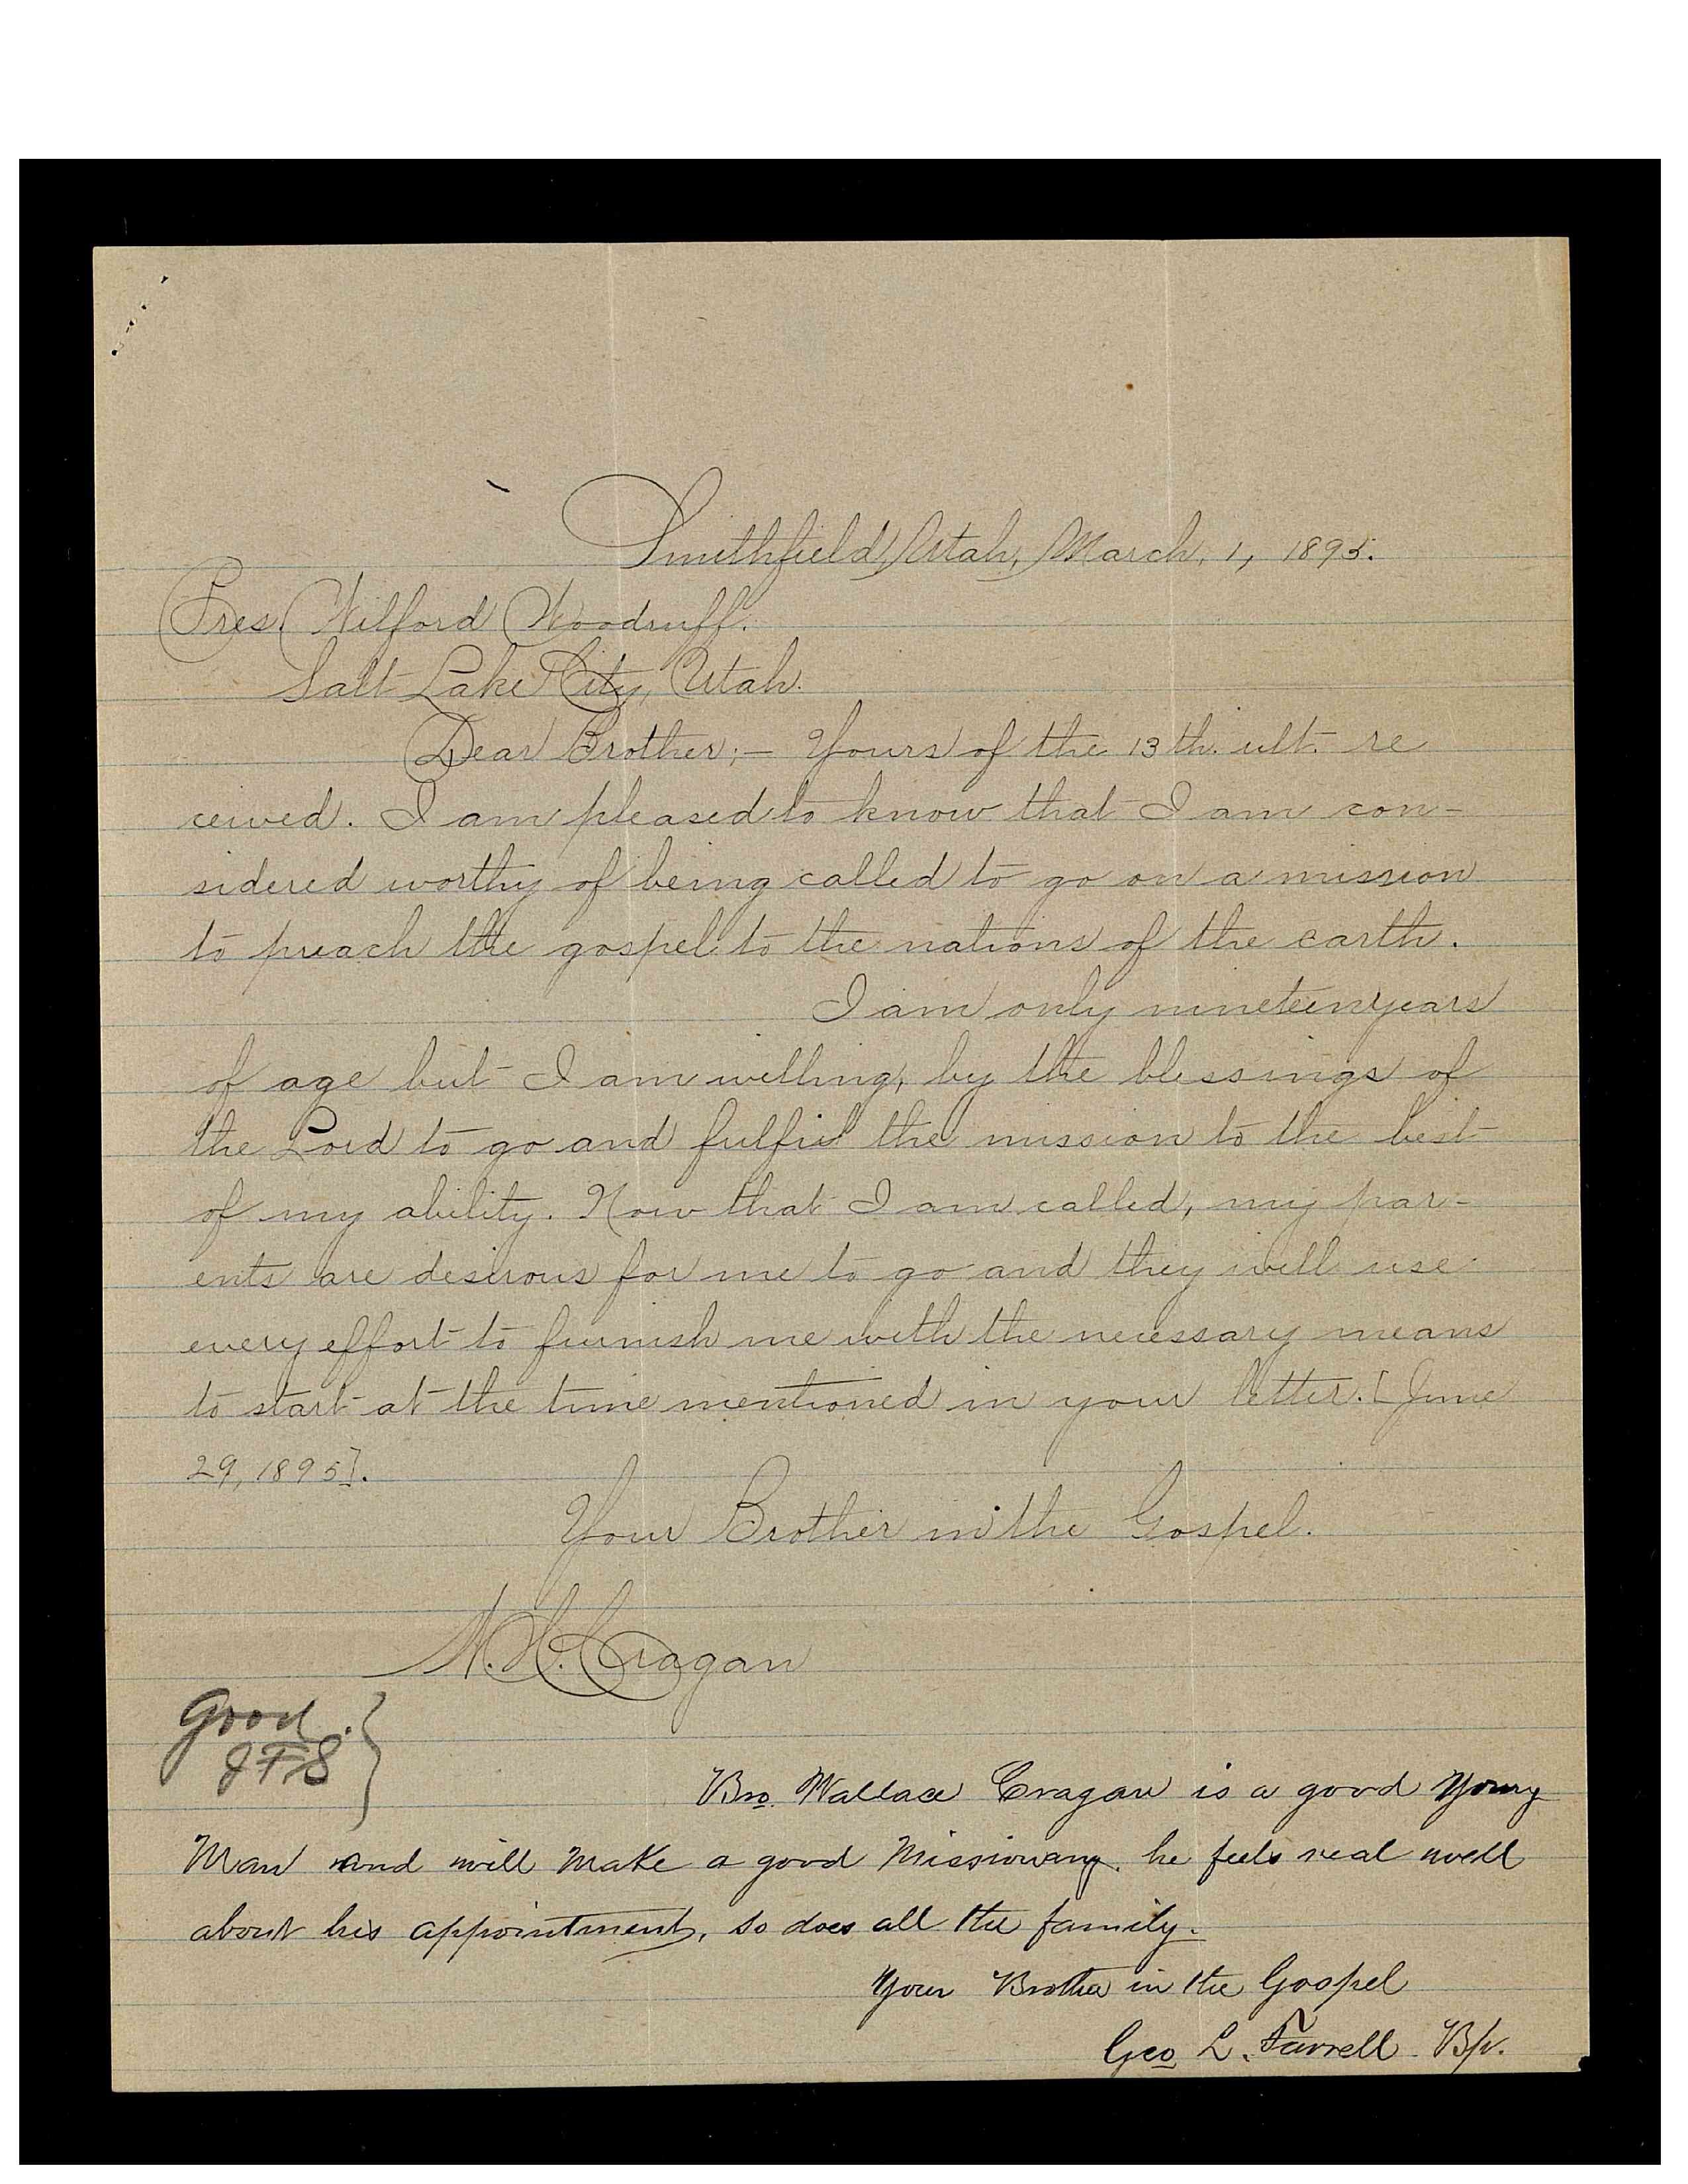 Smithfield, Utah, March, 1, 1895.
Pres. Wilford Woodruff.
Salt Lake City, Utah.
Dear Brother;— Yours of the 13th. ult. re
ceived. I am pleased to know that I am con-
sidered worthy of being called to go on a mission
to preach the gospel to the nations of the earth.
I am only nineteen years
of age but I am willing, by the blessings of
the Lord to go and fulfil the mission to the best
of my ability. Now that I am called, my par-
ents are desirous for me to go and they will use
every effort to furnish me with the necessary means
to start at the time mentioned in your letter. [June
29, 1895].
Your Brother in the Gospel.
W. H. Cragan
Good.
JFS
Bro. Wallace Cragan is a good young
Man and will make a good Missionary. he feels real well
about his appointment, so does all the family.
Your Brother in the Gospel
Geo L. Farrell Bp.